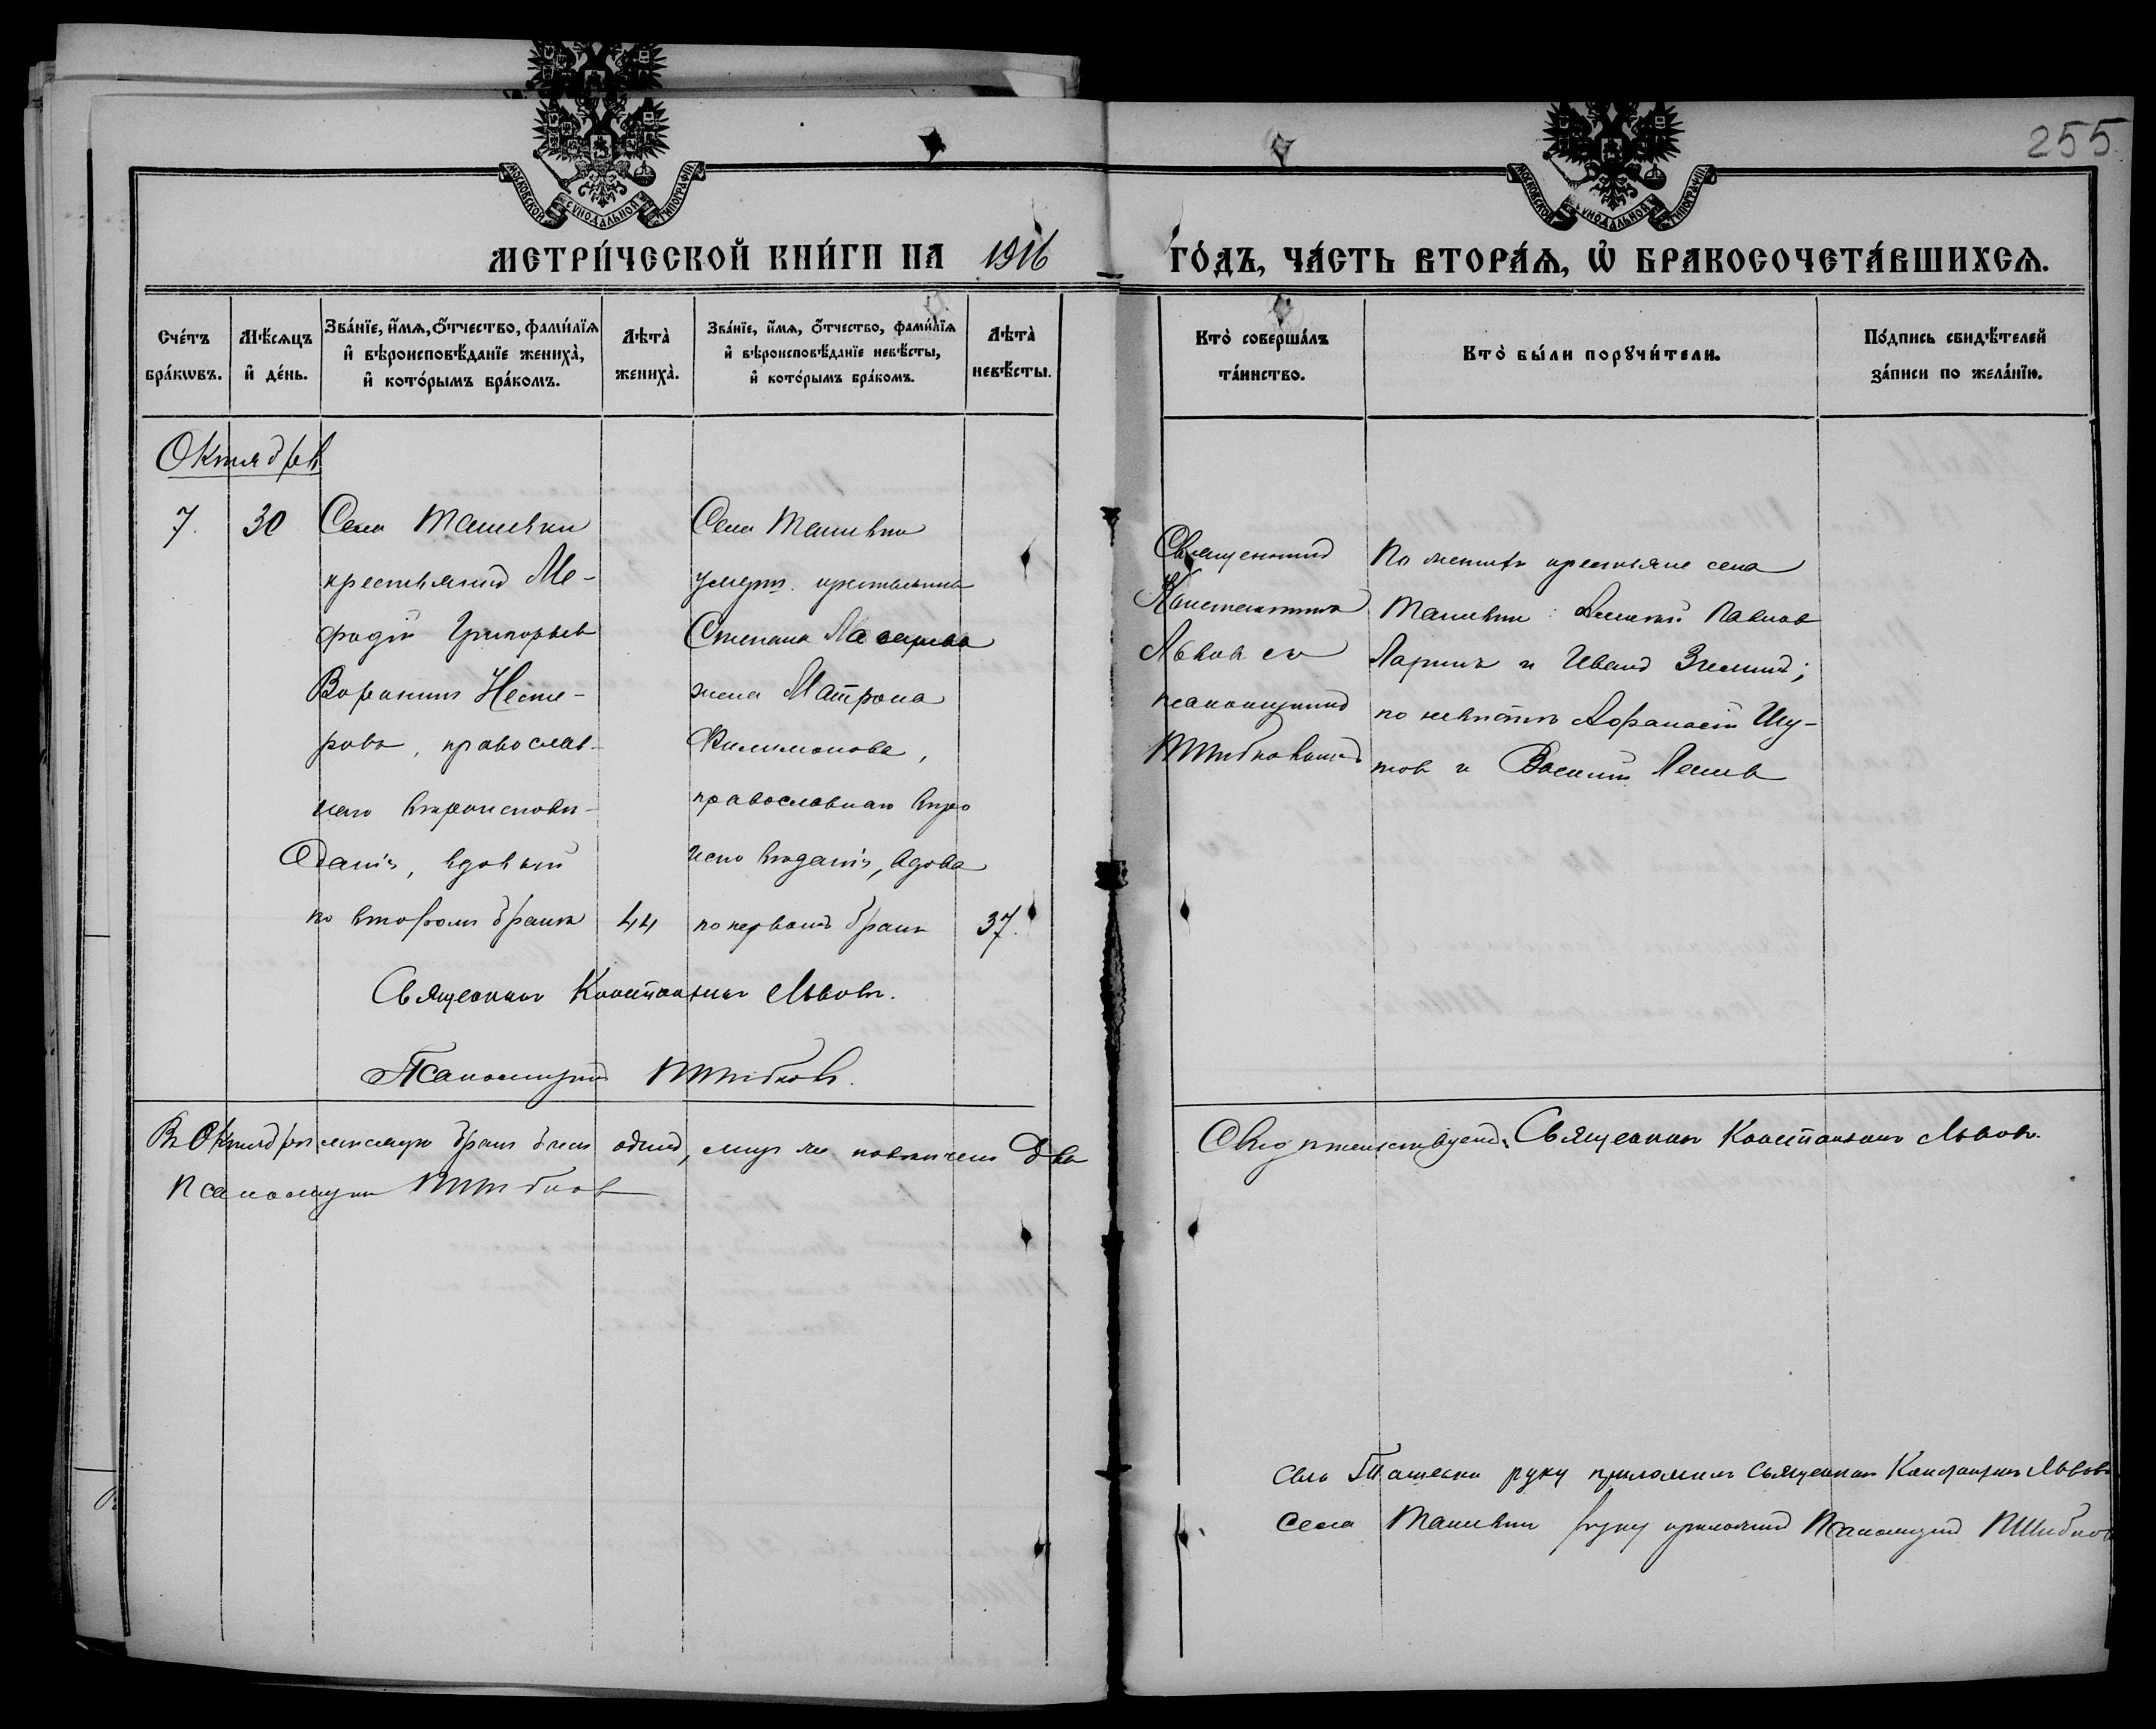 255
МОСКОВСКОЙ СУНОДАЛЬНОЙ ТИПОГРАФІИ
МОСКОВСКОЙ СУНОДАЛЬНОЙ ТИПОГРАФІИ
МЕТРИ́ЧЕСКОЙ КНИ́ГИ НА 1916 ГО́ДЪ, ЧА́СТЬ ВТОРА́Ѧ, Ѡ҆ БРАКОСОЧЕТА́ВШИХСѦ.
Сче́тъ бра́кѡвъ.
Мѣ́сѧцъ и҆ де́нь.
Зва́нїе, и҆́мѧ, ѻ҆́тчество, фами́лїѧ
и҆ вѣроисповѣ́данїе жениха̀,
и҆ кото́рымъ бра́комъ.
Лѣта̀ жениха̀.
Зва́нїе, и҆́мѧ, ѻ҆́тчество, фами́лїѧ
и҆ вѣроисповѣ́данїе невѣ́сты,
и҆ кото́рымъ бра́комъ.
Лѣта̀ невѣ́сты.
Кто̀ соверша́лъ та́инство.
Кто̀ бы́ли порꙋчи́тели.
По́дпись свидѣ́телей
за́писи по жела́нїю.
Октябрь
7. 30
Села Ташевки
крестьянинъ Ме-
фодій Григорьев
Воронинъ Несте-
ровъ, православ-
наго вѣроисповѣ-
данія, вдовый
по второмъ бракѣ
44
Села Ташевки
умерш. крестьянина
Степана
жена Матрона
Филимонова,
православнаго вѣро
исповѣданія, вдова
по первомъ бракѣ
37.
Священникъ
Константинъ
Львовъ съ
псаломщикомъ
По женихѣ крестьяне села
Ташевки: Алексѣй Павлов
Ларинъ и Иванъ Зиминъ;
по невѣстѣ Афанасій Шу-
тов и Василій
Священникъ Константинъ Львовъ.
Псаломщикъ
Въ Октябрѣ мѣсяцѣ бракъ былъ одинъ, лицъ же повѣнчано два
Псаломщикъ
Свидѣтельствуетъ Священникъ Константинъ Львовъ.
Села Ташевки руку приложилъ священникъ Константинъ Львовъ
Села Ташевки руку приложилъ Псаломщикъ